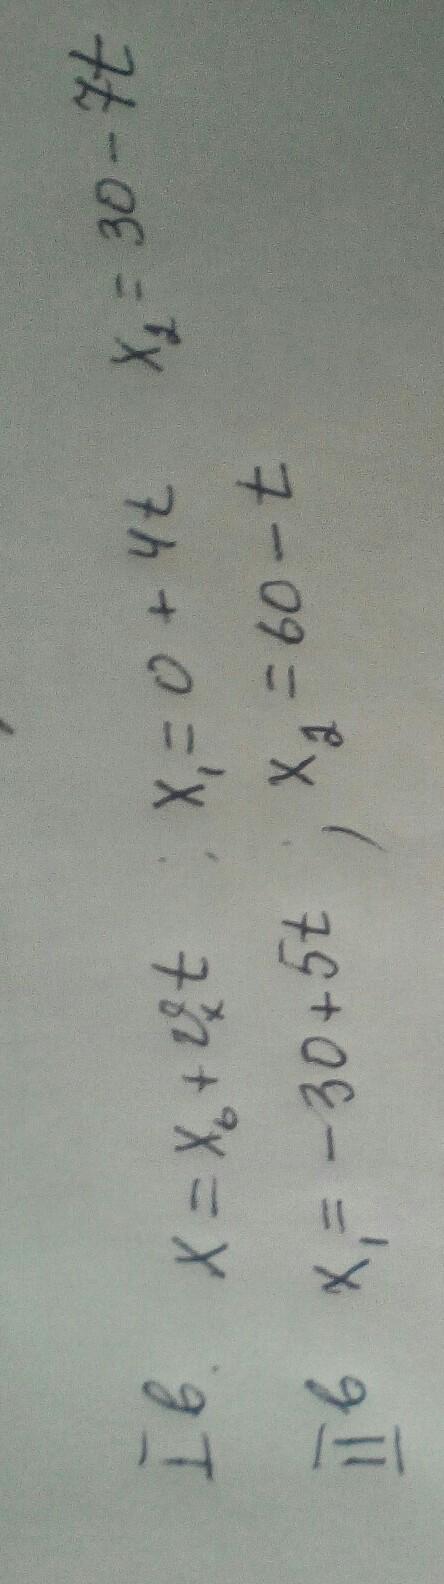 I в. x = x₀ + υₓt : x₁ = 0 + 4t x₂ = 30 - 7t
II в x₁ = -30 + 5t, x₂ = 60 - t